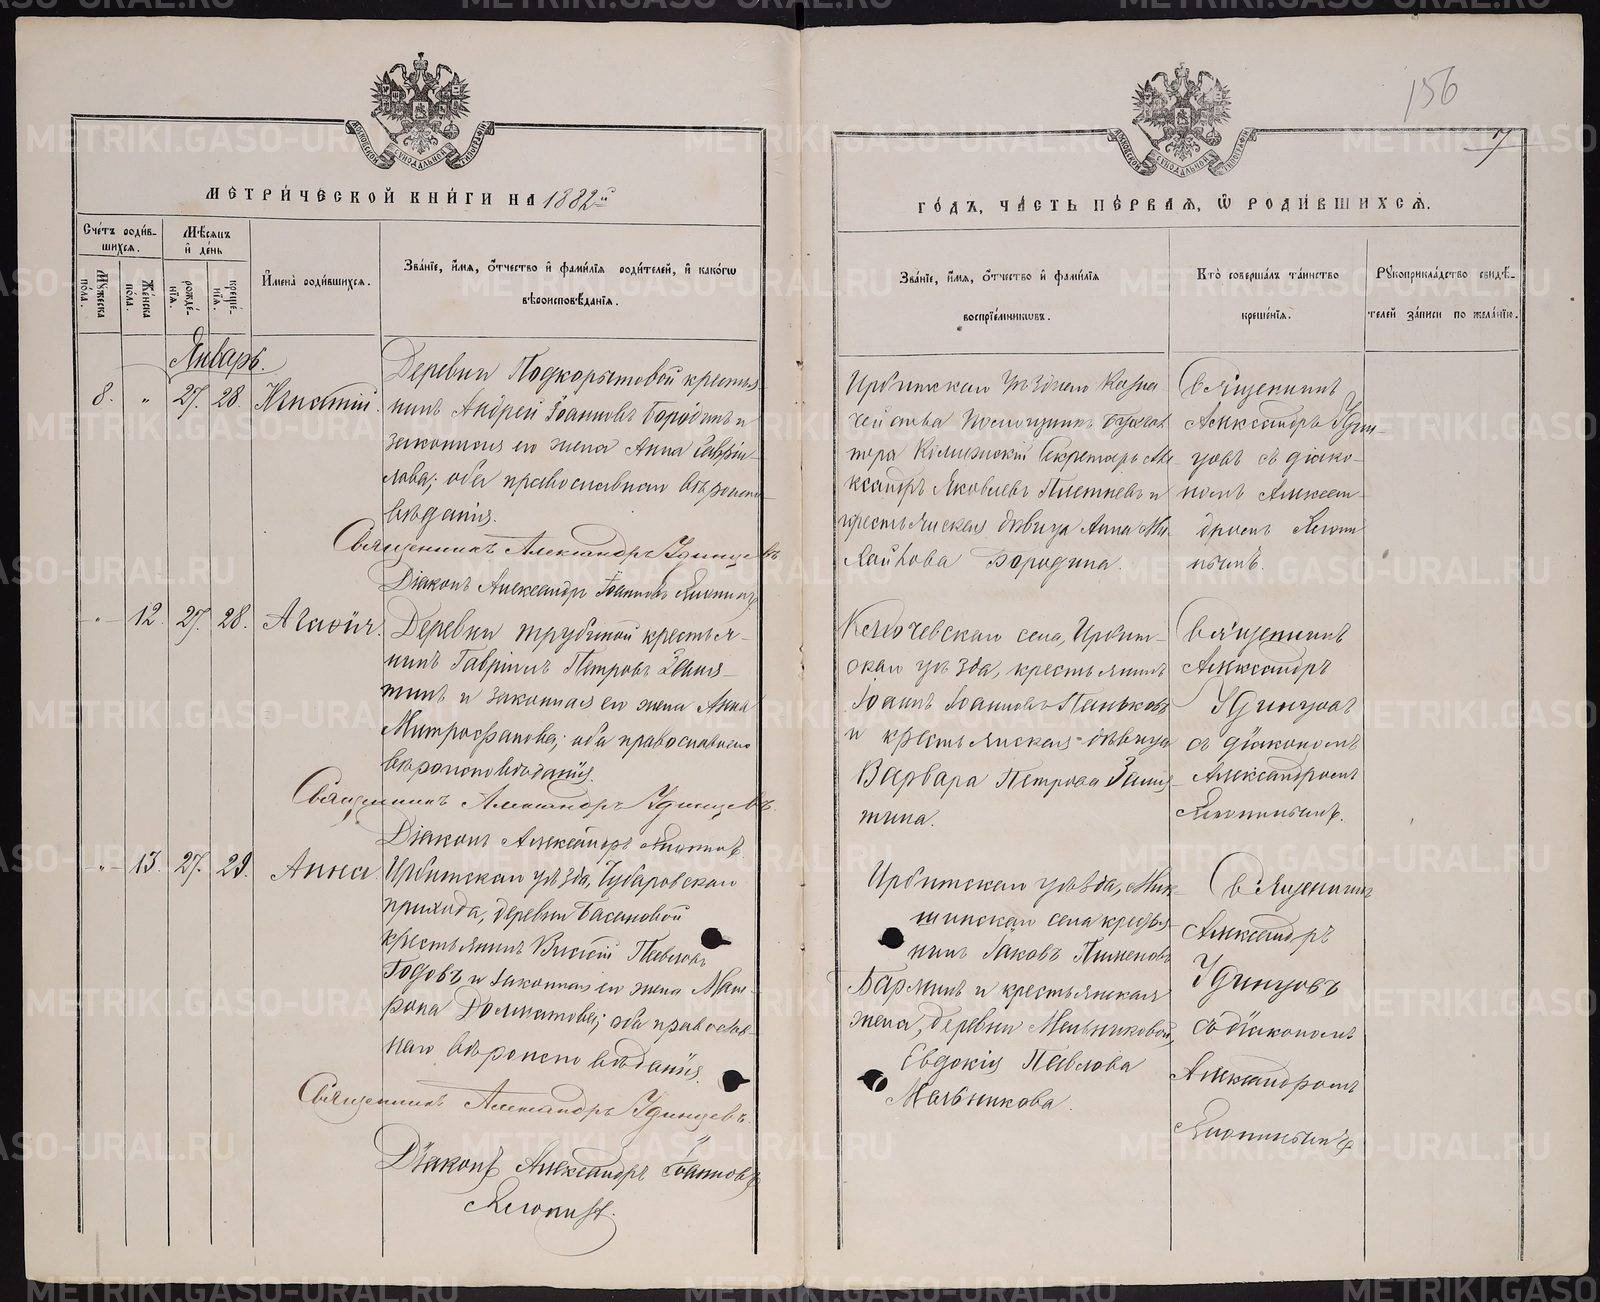 156
7
МЕТРИЧЕСКОЙ КНИГИ НА 1882й
ГОДЪ, ЧАСТЬ ПЕРВАЯ, Ѡ РОДИВШИХСЯ.
Счетъ родив-
шихся.
Мѣсяцъ
и день
Мужеска
пола.
Женска
пола.
рожде-
нія.
креще-
нія.
Имена родившихся.
Званіе, имя, отчество и фамилія родителей, и какогѡ
вѣроисповѣданія.
Званіе, имя, отчество и фамилія
воспріемниковъ.
Кто совершалъ таинство
крещенія.
Рукоприкладство свидѣ-
телей записи по желанію.
Январь.
8. „ 27. 28. Игнатій.
Деревни Подкорытовой крестья-
нинъ Андрей Іоанновъ Бородинъ и
законная его жена Анна Гаврiи-
лова; оба православнаго вѣроиспо-
вѣданія.
Священникъ Александръ Удинцевъ
Діаконъ Александръ Іоанновъ
Ирбитскаго уѣзднаго Казна-
чейства Помощникъ Бухгал-
тора Коллежскій Секретарь Але-
ксандръ Яковлевъ и
крестьянская дѣвица Анна Ми-
хайлова Бородина.
Священникъ
Александръ Удин-
цовъ съ діако-
номъ Алексан-
дромъ
„ 12. 27. 28. Агафія.
Деревни Трубиной крестья-
нинъ Гавріилъ Петровъ Замя-
тинъ и законная его жена Анна
Митрофанова; оба православнаго
вѣроисповѣданія.
Священникъ Александръ Удинцевъ.
Діаконъ Александръ
Ключевскаго села, Ирбит-
скаго уѣзда, крестьянинъ
Іоаннъ Іоанновъ Паньковъ
и крестьянская дѣвица
Варвара Петрова Замя-
тина.
Священникъ
Александръ
Удинцовъ
съ діакономъ
Александромъ
„ 13. 27. 29. Анна.
Ирбитскаго уѣзда, Чубаровскаго
прихода, деревни Басановой
крестьянинъ Павловъ
Годовъ и законная его жена Мат-
рона Долматова; оба православ-
наго вѣроисповѣданія.
Священникъ Александръ Удинцевъ.
Діаконъ Александръ Іоанновъ
Ирбитскаго уѣзда,
шинскаго села крестья-
нинъ Іаковъ Пименовъ
Барминъ и крестьянская
жена, деревни Мельниковой,
Евдокія Павлова
Мельникова.
Священникъ
Александръ
Удинцовъ
съ діакономъ
Александромъ
METRIKI.GASO-URAL.RU